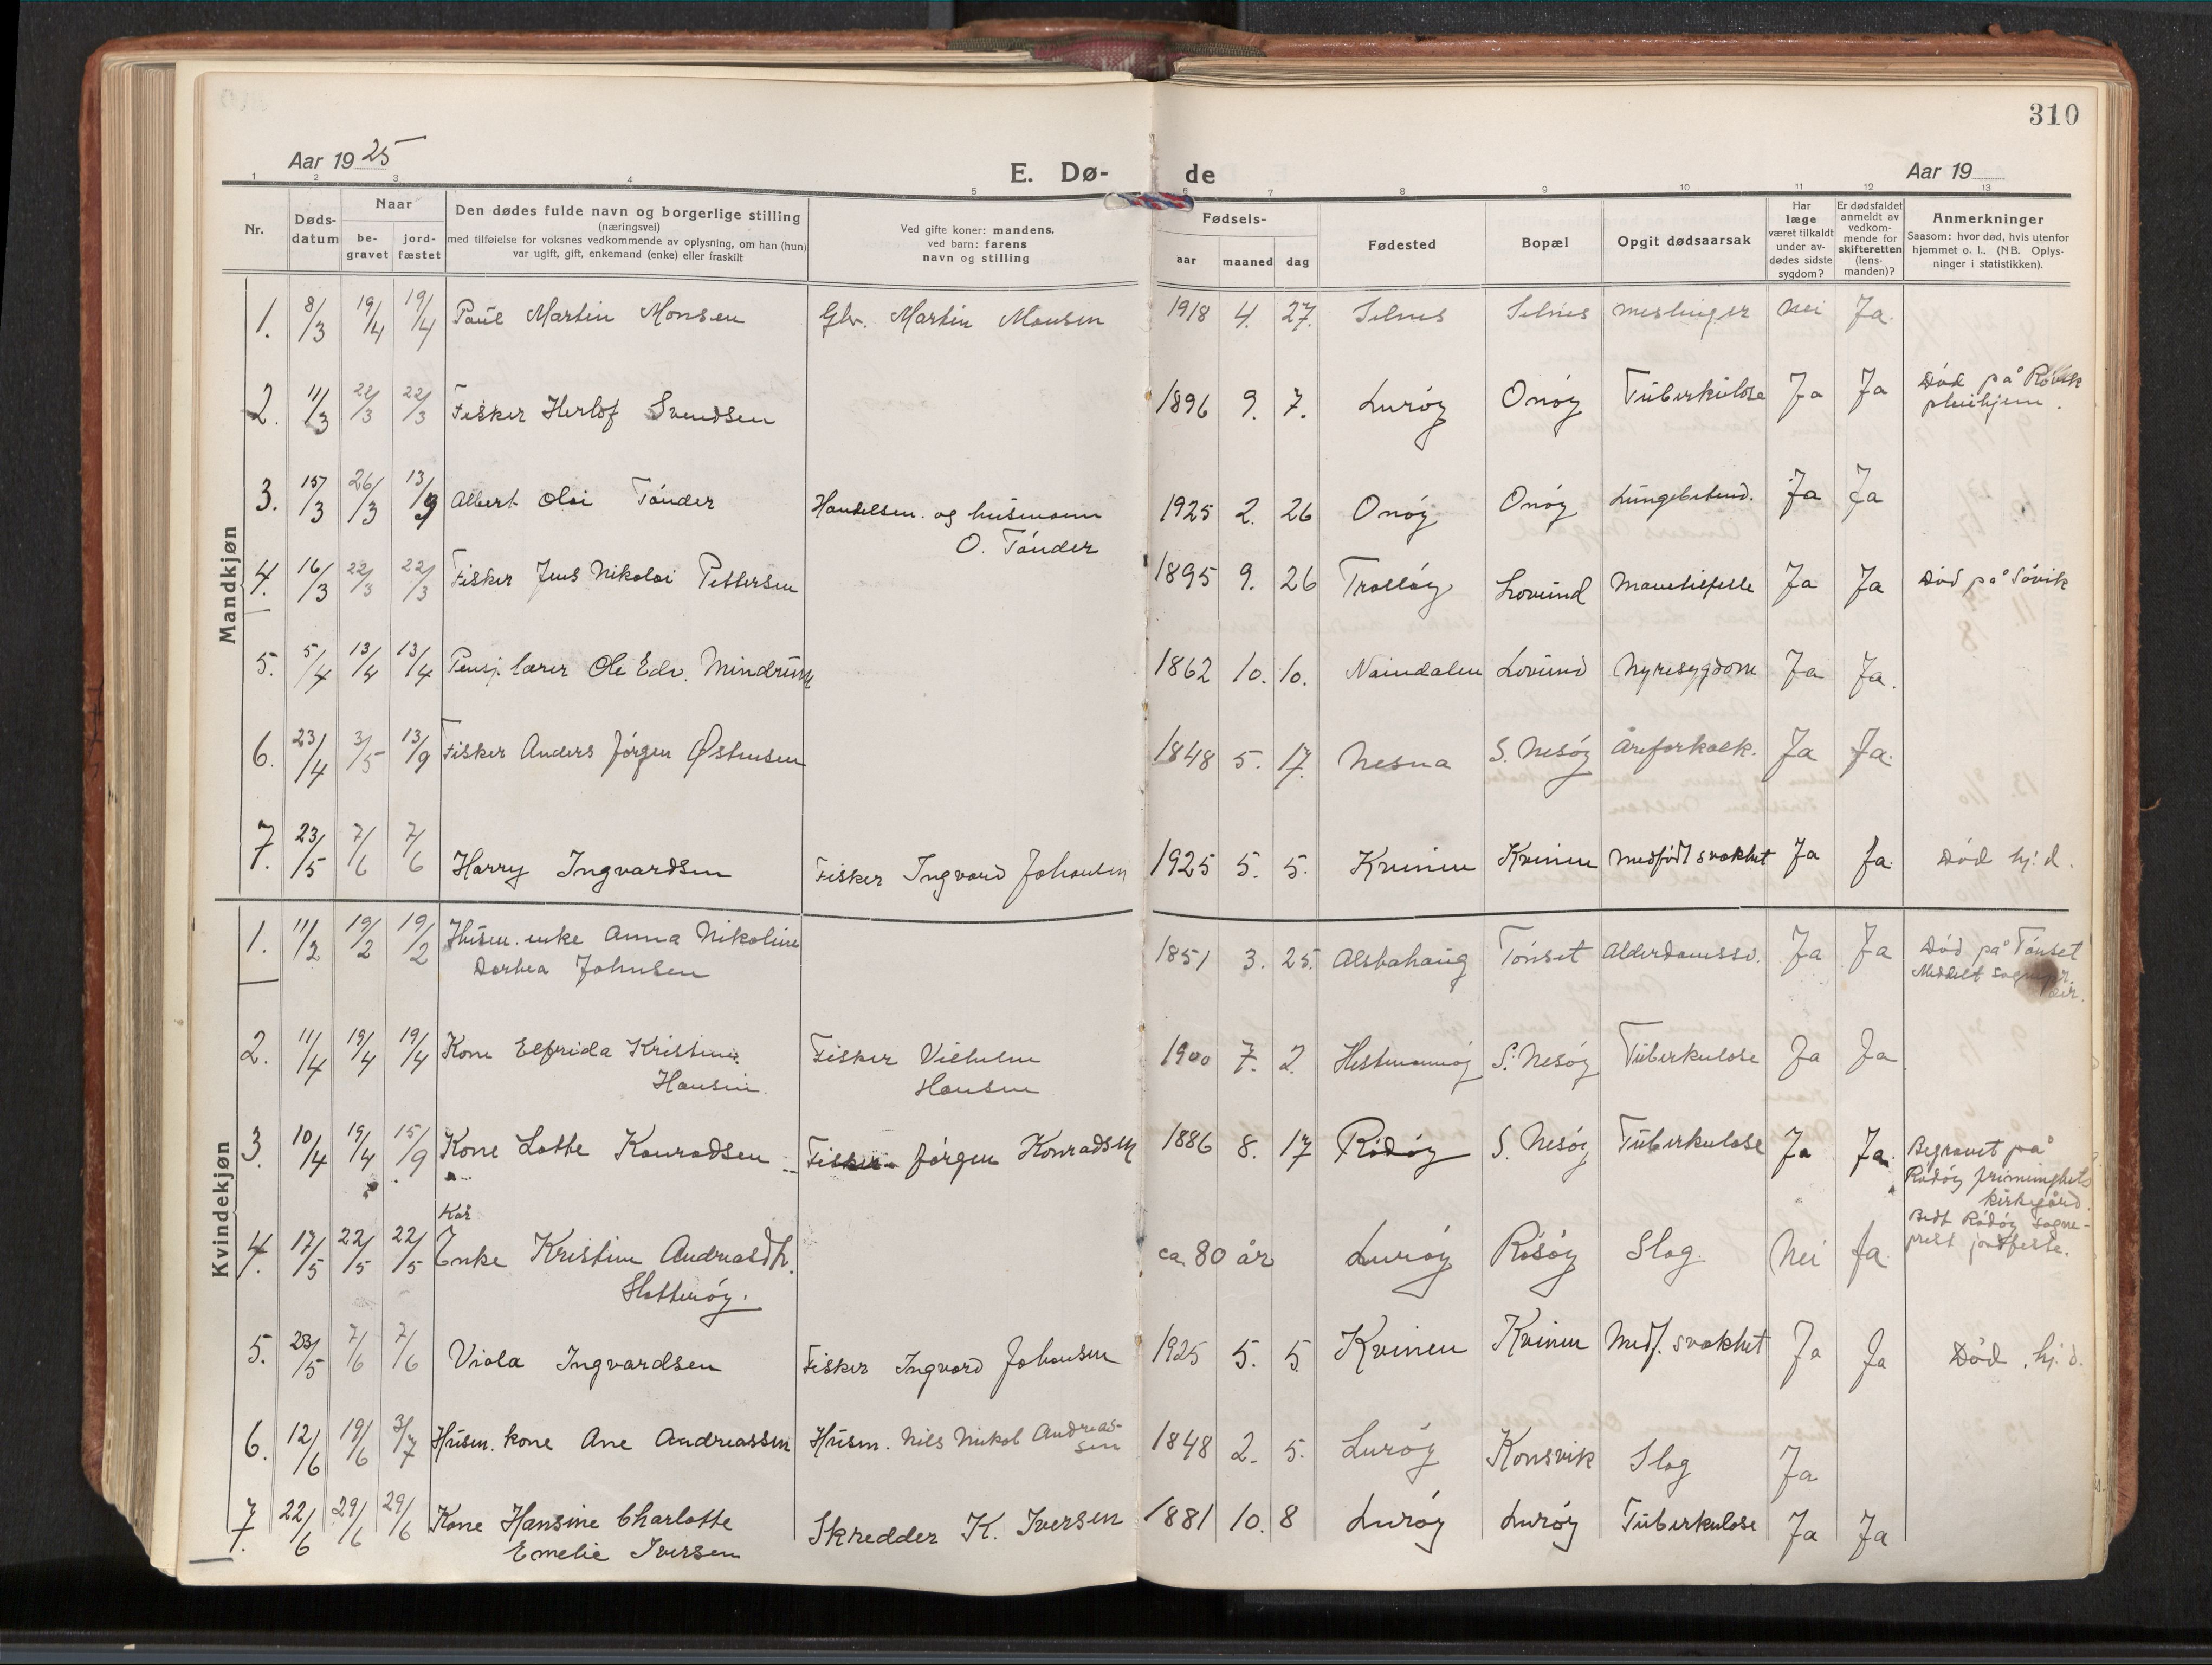 310
Aar 1925
E. Dø-
de
Aar 19
1 2 3 4 5 6 7 8 9 10 11 12 13
Nr.
Døds-
datum
Naar
be-
gravet
jord-
fæstet
Den dødes fulde navn og borgerlige stilling
(næringsvei)
med tilføielse for voksnes vedkommende av oplysning, om han (hun)
var ugift, gift, enkemand (enke) eller fraskilt
Ved gifte koner: mandens,
ved barn: farens
navn og stilling
Fødsels-
aar maaned dag
Fødested
Bopæl
Opgit dødsaarsak
Har
læge
været tilkaldt
under av-
dødes sidste
sygdom?
Er dødsfaldet
anmeldt av
vedkom-
mende for
skifteretten
(lens-
manden)?
Anmerkninger
Saasom: hvor død, hvis utenfor
hjemmet o. l.. (NB. Oplys-
ninger i statistikken).
Mandkjøn
1. 8/3 19/4 19/4 Paul Martin Monsen Gbr. Martin Monsen 1918 4. 27. Selnes Selnes meslinger nei Ja.
2. 11/3 22/3 22/3 Fisker Herlof Svendsen 1896 9. 7. Lurøy Onøy Tuberkulose Ja Ja Død på Røvik
pleihjem.
3. 15/3 26/3 13/9 Albert Olai Tønder Handelsm. og husmann 1925 2. 26 Onøy Onøy Lungebetend. Ja Ja
O. Tønder
4. 16/3 22/3 22/3 Fisker Jens Nikolai Pettersen 1895 9. 26 Trolløy Lovund Mavetilfelle Ja Ja Død på Søvik
5. 5/4 13/4 13/4 Pensj. lærer Ole Edv. Mindrum 1862 10. 10. Namdalen Lovund Nyresygdom Ja Ja.
6. 23/4 3/5 13/9 Fisker Anders Jørgen Østensen 1848 5. 17. Nesna S. Nesøy Åreforkalk. Ja Ja.
7. 23/5 7/6 7/6 Harry Ingvardsen Fisker Ingvard Johansen 1925 5. 5. Kvinen Kvinen Medfødt svakhet Ja Ja. Død hj. d.
Kvindekjøn
1. 11/2 19/2 19/2 Husm. enke Anna Nikoline 1851 3. 25. Alstahaug Tønset Alderdomssv. Ja Ja Død på Tønset
Dortea Johnsen Meddelt sognepr.
2. 11/4 19/4 19/4 Kone Elfrida Kristine Fisker Vilhelm 1900 7. 2. Hestmannøy S. Nesøy Tuberkulose Ja Ja
Hansen. Hansen
3. 10/4 19/4 15/9 Kone Lotte Konradsen Fisker Jørgen Konradsen 1886 8. 17 Rødøy S. Nesøy Tuberkulose Ja Ja. Begravet på
Rødøy
kirkegård.
Bedt Rødøy sogne-
prest jordfeste.
Kår
4. 17/5 22/5 22/5 Enke Kristine Andreasdtr. ca. 80 år Lurøy Råsøy Slag Nei Ja.
Slotterøy.
5. 23/5 7/6 7/6 Viola Ingvardsen Fisker Ingvard Johansen 1925 5. 5 Kvinen Kvinen Medf. svakhet Ja Ja Død hj. d.
6. 12/6 19/6 3/7 Husm. kone Ane Andreassen Husm. Nils Nikol Andreas- 1848 2. 5. Lurøy Konsvik Slag Ja
sen
7. 22/6 29/6 29/6 Kone Hansine Charlotte Skredder K. Iversen 1881 10. 8 Lurøy Lurøy Tuberkulose Ja Ja
Emelie Iversen